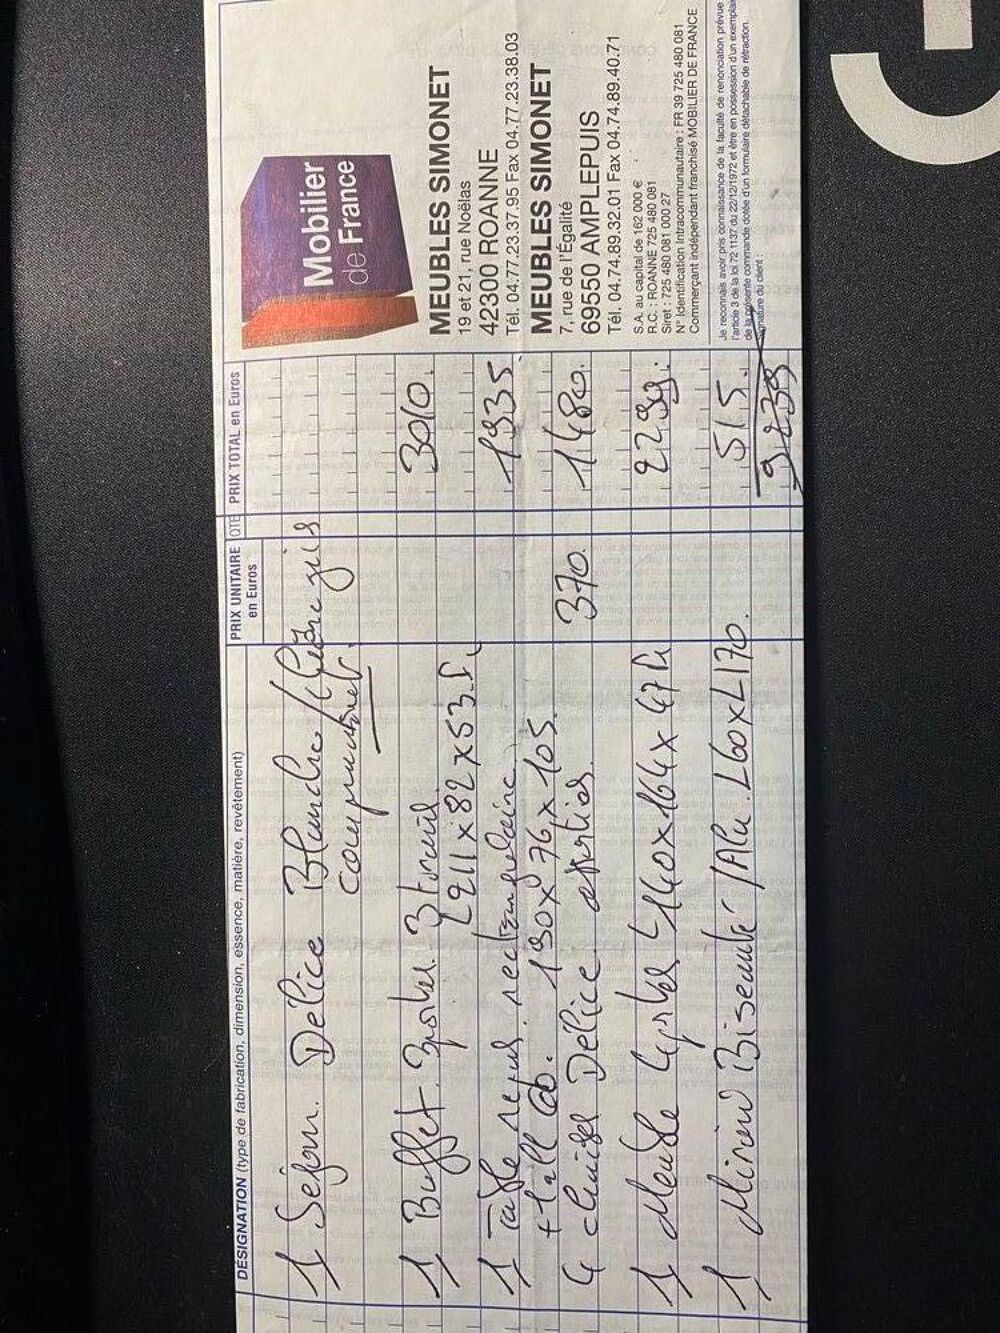 DÉSIGNATION (type de fabrication, dimension, essence, matière, revêtement) PRIX UNITAIRE en Euros QTÉ PRIX TOTAL en Euros
1 Séjour Délice Blanche gris
1 Buffet 3 portes 3 3010.
211 x 82 x 53
1 Table repas rectangulaire 1935.
+ 190 x 76 x 105.
4 chaises Délice assorties 370. 1480.
1 Meuble 4 portes L 140 x 164 x 47 2299.
1 Miroir Biseauté L60 x L170. 515.
9239
Mobilier
de France
MEUBLES SIMONET
19 et 21, rue Noëlas
42300 ROANNE
Tél. 04.77.23.37.95 Fax 04.77.23.38.03
MEUBLES SIMONET
7, rue de l'Égalité
69550 AMPLEPUIS
Tél. 04.74.89.32.01 Fax 04.74.89.40.71
S.A. au capital de 162 000 €
R.C. : ROANNE 725 480 081
Siret : 725 480 081 000 27
N° Identification Intracommunautaire : FR 39 725 480 081
Commerçant indépendant franchisé MOBILIER DE FRANCE
Je reconnais avoir pris connaissance de la faculté de renonciation prévue
l'article 3 de la loi 72 1137 du 22/12/1972 et être en possession d'un
de la présente commande dotée d'un formulaire détachable de rétraction.
du client :